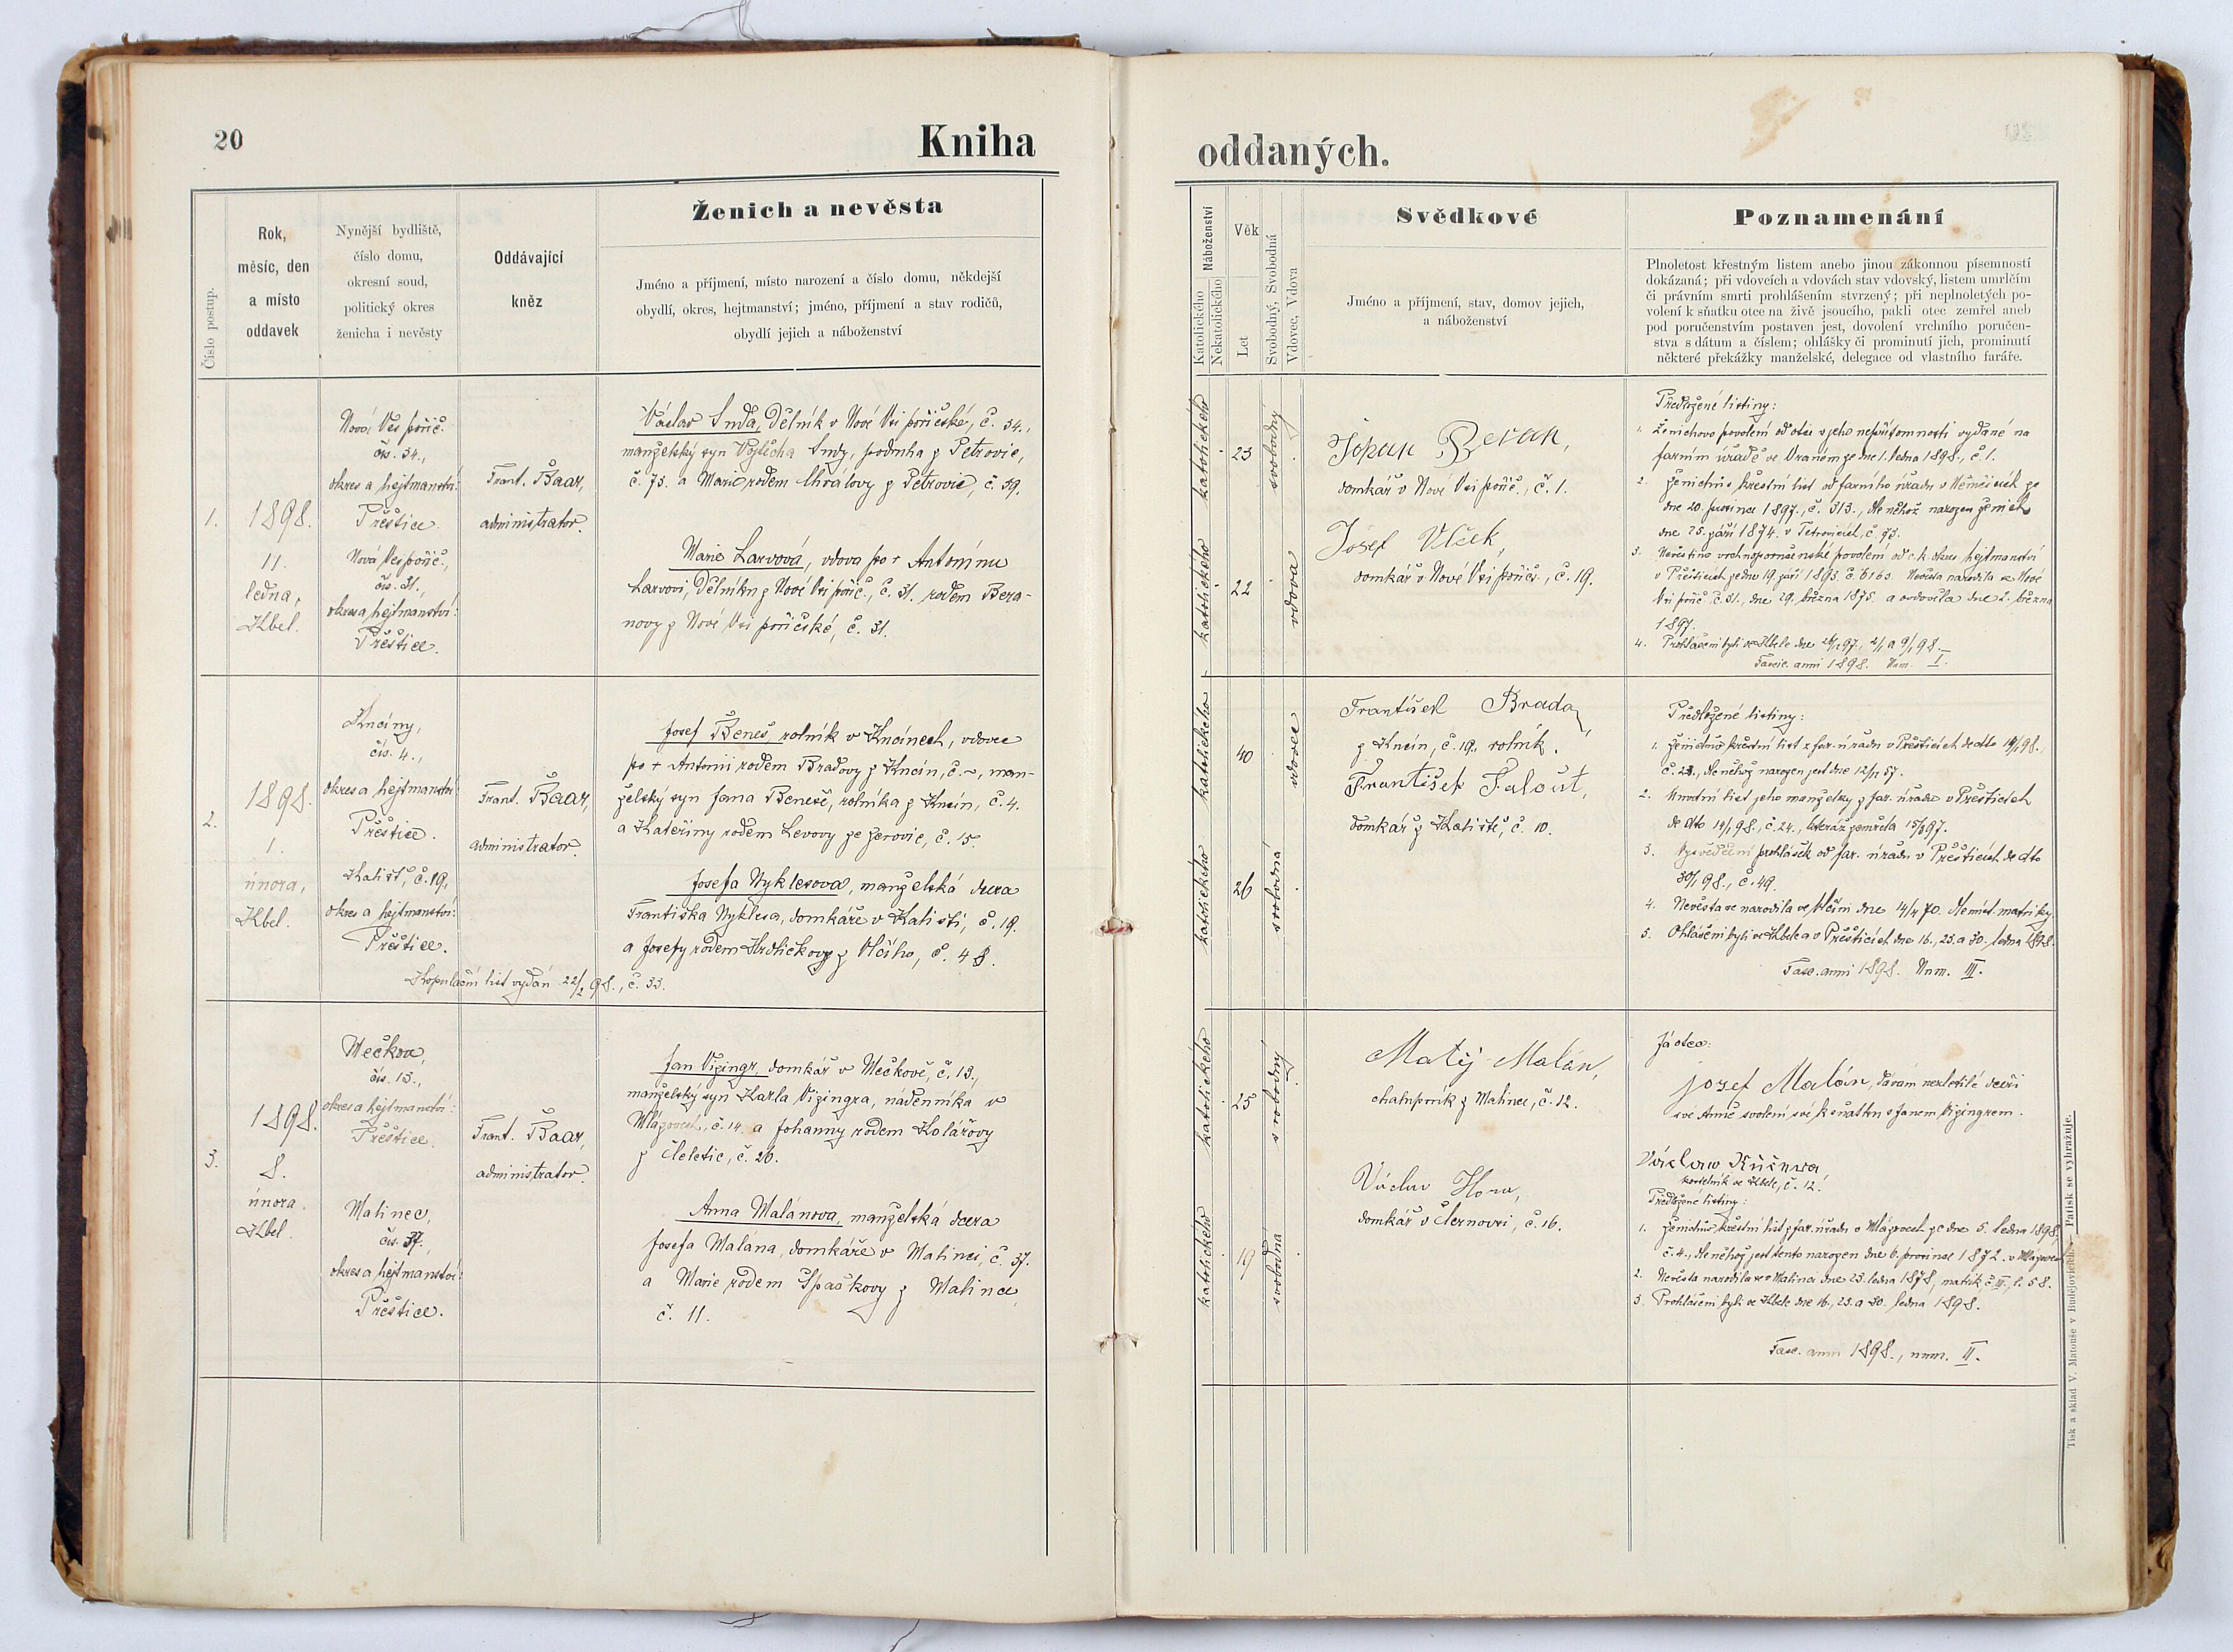 20
Kniha
Číslo postup.
Rok,
měsíc, den
a místo
oddavek
Nynější bydliště,
číslo domu,
okresní soud,
politický okres
ženicha i nevěsty
Oddávající
kněz
Ženich a nevěsta
Jméno a příjmení, místo narození a číslo domu, někdejší
obydlí, okres, hejtmanství; jméno, příjmení a stav rodičů,
obydlí jejich a náboženství
1.
1898.
11.
ledna,
Kbel.
Nová Ves poříč.
čís. 34.,
okres a hejtmanství:
Přeštice.
Nová Ves poříč.,
čís. 31.,
okres a hejtmanství:
Přeštice.
Frant. Baar,
administrator.
Václav Snda, dělník v Nové Vsi poříčské, č. 34.,
manželský syn Vojtěcha Sndy, podruha z Petrovic,
č. 73. a Marie rodem Chválovy z Petrovic, č. 39.
Marie Larvová, vdova po † Antonínu
Larvovi, dělníku z Nové Vsi poříč., č. 31. rodem Bera-
novy z Nové Vsi poříčské, č. 31.
2.
1898.
1.
února,
Kbel.
Knčiny,
čís. 4.,
okres a hejtmanství:
Přeštice.
Kališť, č. 19,
okres a hejtmanství:
Přeštice.
Frant. Baar,
administrator.
Josef Beneš, rolník v Knčinech, vdovec
po † Antonii rodem Bradovy z Knčin, č. ~, man-
želský syn Jana Beneše, rolníka z Knčin, č. 4.
a Kateřiny rodem Levovy ze Žerovic, č. 15.
Josefa Nyklesova, manželská dcera
Františka Nyklesa, domkáře v Kališti, č. 19.
a Josefy rodem Hrdličkovy z Vlčího, č. 48.
Kopulační list vydán 22/2 98., č. 33.
3.
1898.
8.
února.
Kbel.
Mečkov,
čís. 13.,
okres a hejtmanství:
Přeštice.
Malinec,
čís. 37.,
okres a hejtmanství:
Přeštice.
Frant. Baar,
administrator.
Jan Vizingr, domkář v Mečkově, č. 13.,
manželský syn Karla Vizingra, nádenníka v
č. 14. a Johanny rodem Kolářovy
z Neletic, č. 26.
Anna Malánova, manželská dcera
Josefa Malana, domkáře v Malinci, č. 37.
a Marie rodem Špačkovy z Malince
č. 11.
oddaných.
Náboženství
Katolického
Nekatolického
Věk
Let
Svobodný, Svobodná
Vdovec, Vdova
Svědkové
Jméno a příjmení, stav, domov jejich,
a náboženství
Poznamenání
Plnoletost křestným listem anebo jinou zákonnou písemností
dokázaná; při vdovcích a vdovách stav vdovský, listem umrlčím
či právním smrti prohlášením stvrzený; při neplnoletých po-
volení k sňatku otce na živě jsoucího, pakli otec zemřel aneb
pod poručenstvím postaven jest, dovolení vrchního poručen-
stva s dátum a číslem; ohlášky či prominutí jich, prominutí
některé překážky manželské, delegace od vlastního faráře.
katolického
23
svobodný
katolického
22
vdova
Johan Beran,
domkář v Nové Vsi poříč., č. 1.
Josef Vlček,
domkář v Nové Vsi poříčs., č. 19.
Předložené listiny:
1. Ženichovo povolení od otce v jeho nepřítomnosti vydané na
farním úřadě ve Vraném ze dne 1. ledna 1898., č. 1.
2. Ženichův křestní list od farního úřadu v Němčicích ze
dne 20. prosince 1897., č. 313., dle něhož narozen ženich
dne 25. září 1874. v Petrovicích, č. 73.
3. Nevěstino vrchnoporučenské povolení od c. k. okres. hejtmanství
v Přešticích ze dne 19. září 1893. č. 6163. Nevěsta narodila se v Nové
Vsi poříč. č. 31., dne 29. března 1875. a ovdověla dne 2. března
1897.
4. Prohlášeni byli ve Kbele dne 26/12 97., 2/1 a 9/1 98.
Fascic. anni 1898. Num. I.
katolického
40
vdovec
katolického
26
svobodná
František Brada,
z Knčin, č. 19. rolník.
František Faloút,
domkář z Kaliště, č. 10.
Předložené listiny:
1. Ženichův křestní list z far. úřadu v Přešticích de dto 14/1 98.,
č. 23., dle něhož narozen jest dne 12/11 57.
2. Úmrtní list jeho manželky z far. úřadu v Přešticích
de dto 14/1 98., č. 24., kteráž zemřela 15/9 97.
3. Vysvědčení prohlášek od far. úřadu v Přešticích de dto
30/1 98., č. 49.
4. Nevěsta se narodila ve Vlčím dne 14/4 70. dle míst. matriky.
5. Ohlášeni byli ve Kbele a v Přešticích dne 16., 23. a 30. ledna 1898.
Fasc. anni 1898. Num. III.
katolického
25
svobodný
katolického
19
svobodná
Matěj Malán,
chalupník z Malince, č. 12.
Václav Hora,
domkář v Černovsi, č. 16.
Já otec:
Josef Malán, dávám nezletilé dceři
své Anně svolení své k sňatku s Janem Vizingrem.
Václav Kučera,
kostelník ve Kbele, č. 12.
Předložené listiny:
1. Ženichův křestní list z far. úřadu v Mlázovech ze dne 5. ledna 1898.
č. 4., dle něhož jest tento narozen dne 6. prosince 1872. v Mlázovech
2. Nevěsta narodila se v Malinci dne 23. ledna 1878, matrik. č. III., l. 58.
3. Prohlášeni byli ve Kbele dne 16., 23. a 30. ledna 1898.
Fasc. anni 1898., num. II.
Tisk a sklad V. Matouše v Budějovicích. — Patisk se vyhražuje.